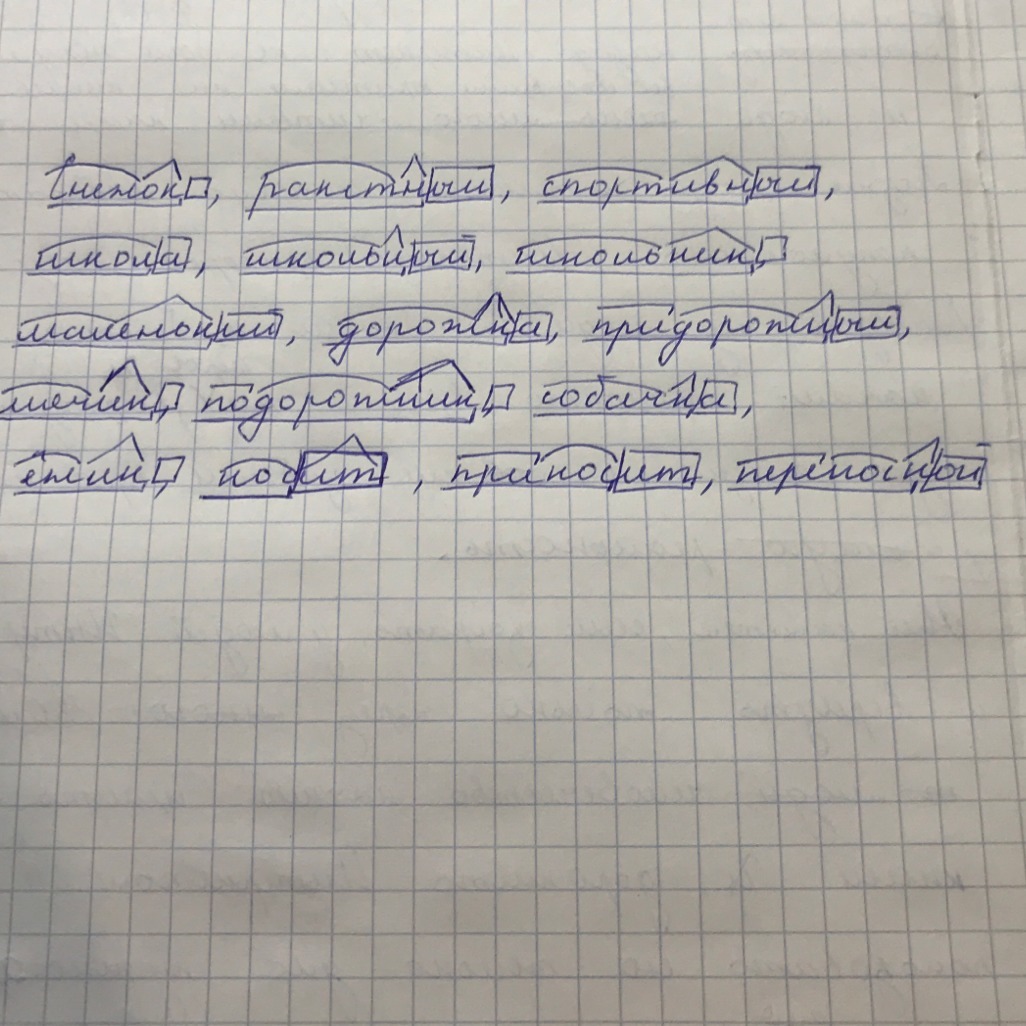 Снежок, ракетный, спортивный,
школа, школьный, школьник
маленький, дорожка, придорожный,
мячик, подорожник, собачка,
ёжик, носит, приносит, переносной